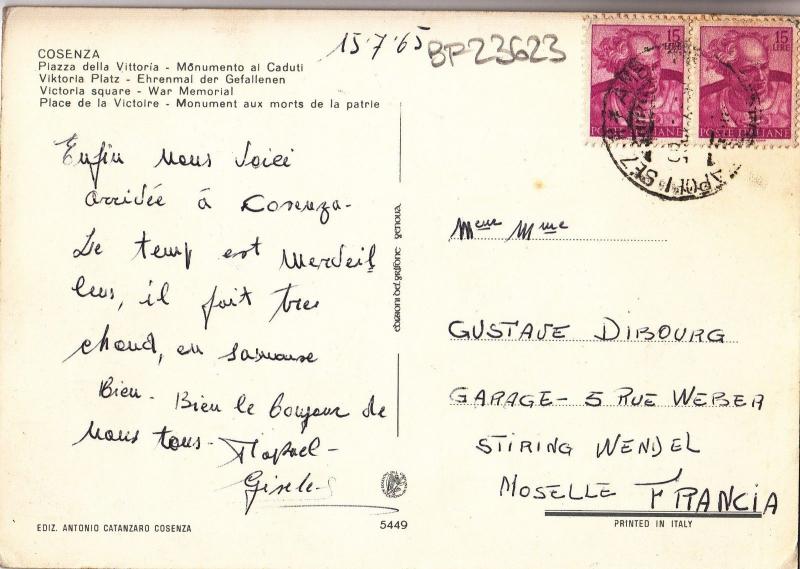 COSENZA
Piazza della Vittoria - Monumento ai Caduti
Viktoria Platz - Ehrenmal der Gefallenen
Victoria square - War Memorial
Place de la Victoire - Monument aux morts de la patrie
15.7.65
BP23623
15 LIRE
15 LIRE
POSTE ITALIANE
POSTE ITALIANE
Enfin nous voici
arrivée à Cosenza-
Le temp est merveil
leus, il fait tres
chaud, on s'amuse
Bien - Bien le bonjour de
nous tous -
Gisele
EDIZIONI DEL GRIFONE GENOVA
Mme
GUSTAVE DIBOURG
GARAGE - 5 RUE WEBER
STIRING WENDEL
MOSELLE FRANCIA
EDIZ. ANTONIO CATANZARO COSENZA
5449
PRINTED IN ITALY